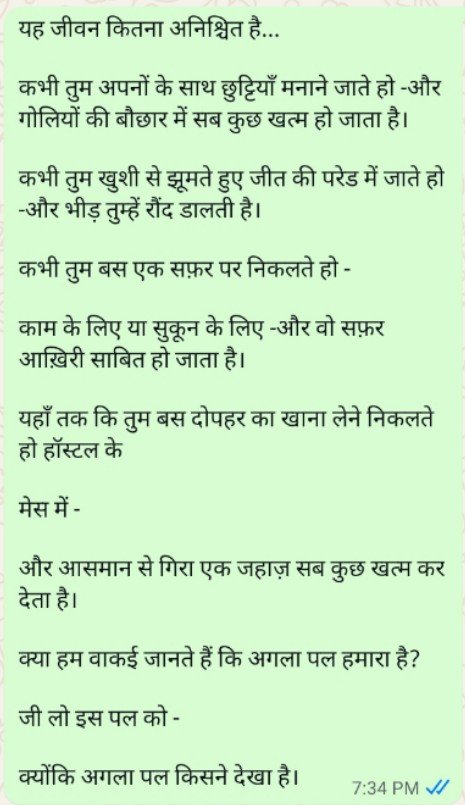 यह जीवन कितना अनिश्चित है...
कभी तुम अपनों के साथ छुट्टियाँ मनाने जाते हो -और
गोलियों की बौछार में सब कुछ खत्म हो जाता है।
कभी तुम खुशी से झूमते हुए जीत की परेड में जाते हो
-और भीड़ तुम्हें रौंद डालती है।
कभी तुम बस एक सफ़र पर निकलते हो -
काम के लिए या सुकून के लिए -और वो सफ़र
आख़िरी साबित हो जाता है।
यहाँ तक कि तुम बस दोपहर का खाना लेने निकलते
हो हॉस्टल के
मेस में -
और आसमान से गिरा एक जहाज़ सब कुछ खत्म कर
देता है।
क्या हम वाकई जानते हैं कि अगला पल हमारा है?
जी लो इस पल को -
क्योंकि अगला पल किसने देखा है।
7:34 PM